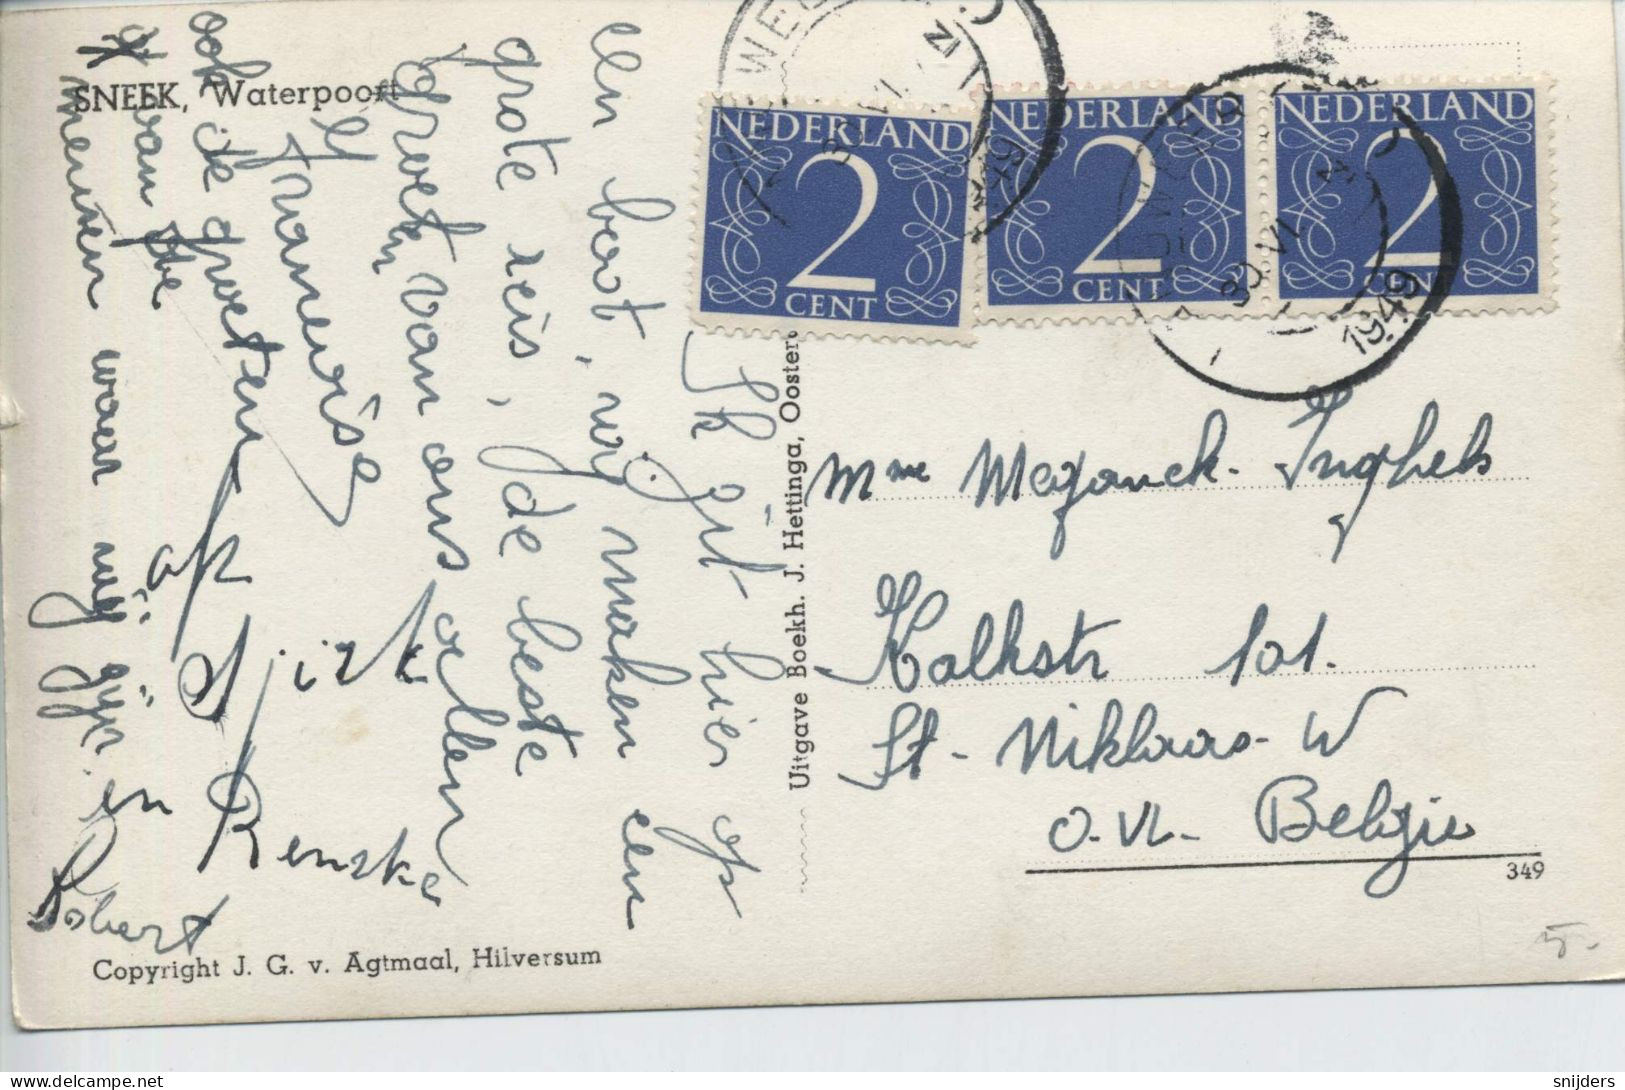 SNEEK, Waterpoort
NEDERLAND
2
CENT
NEDERLAND
2
CENT
NEDERLAND
2
CENT
30 VI
1949
30 VI
1949
Ik zit hier op
een boot, wij maken een
grote reis, de beste
groeten van ons allen
ook de groeten
van de
mensen waar wij zijn en
Sjirk
Renske
Robert
Uitgave Boekh. J. Hettinga, Ooster
Mme Meganck-Inghels
Kalkstr 101.
St-Niklaas-W
O.Vl- België
349
5-
Copyright J. G. v. Agtmaal, Hilversum
snijders